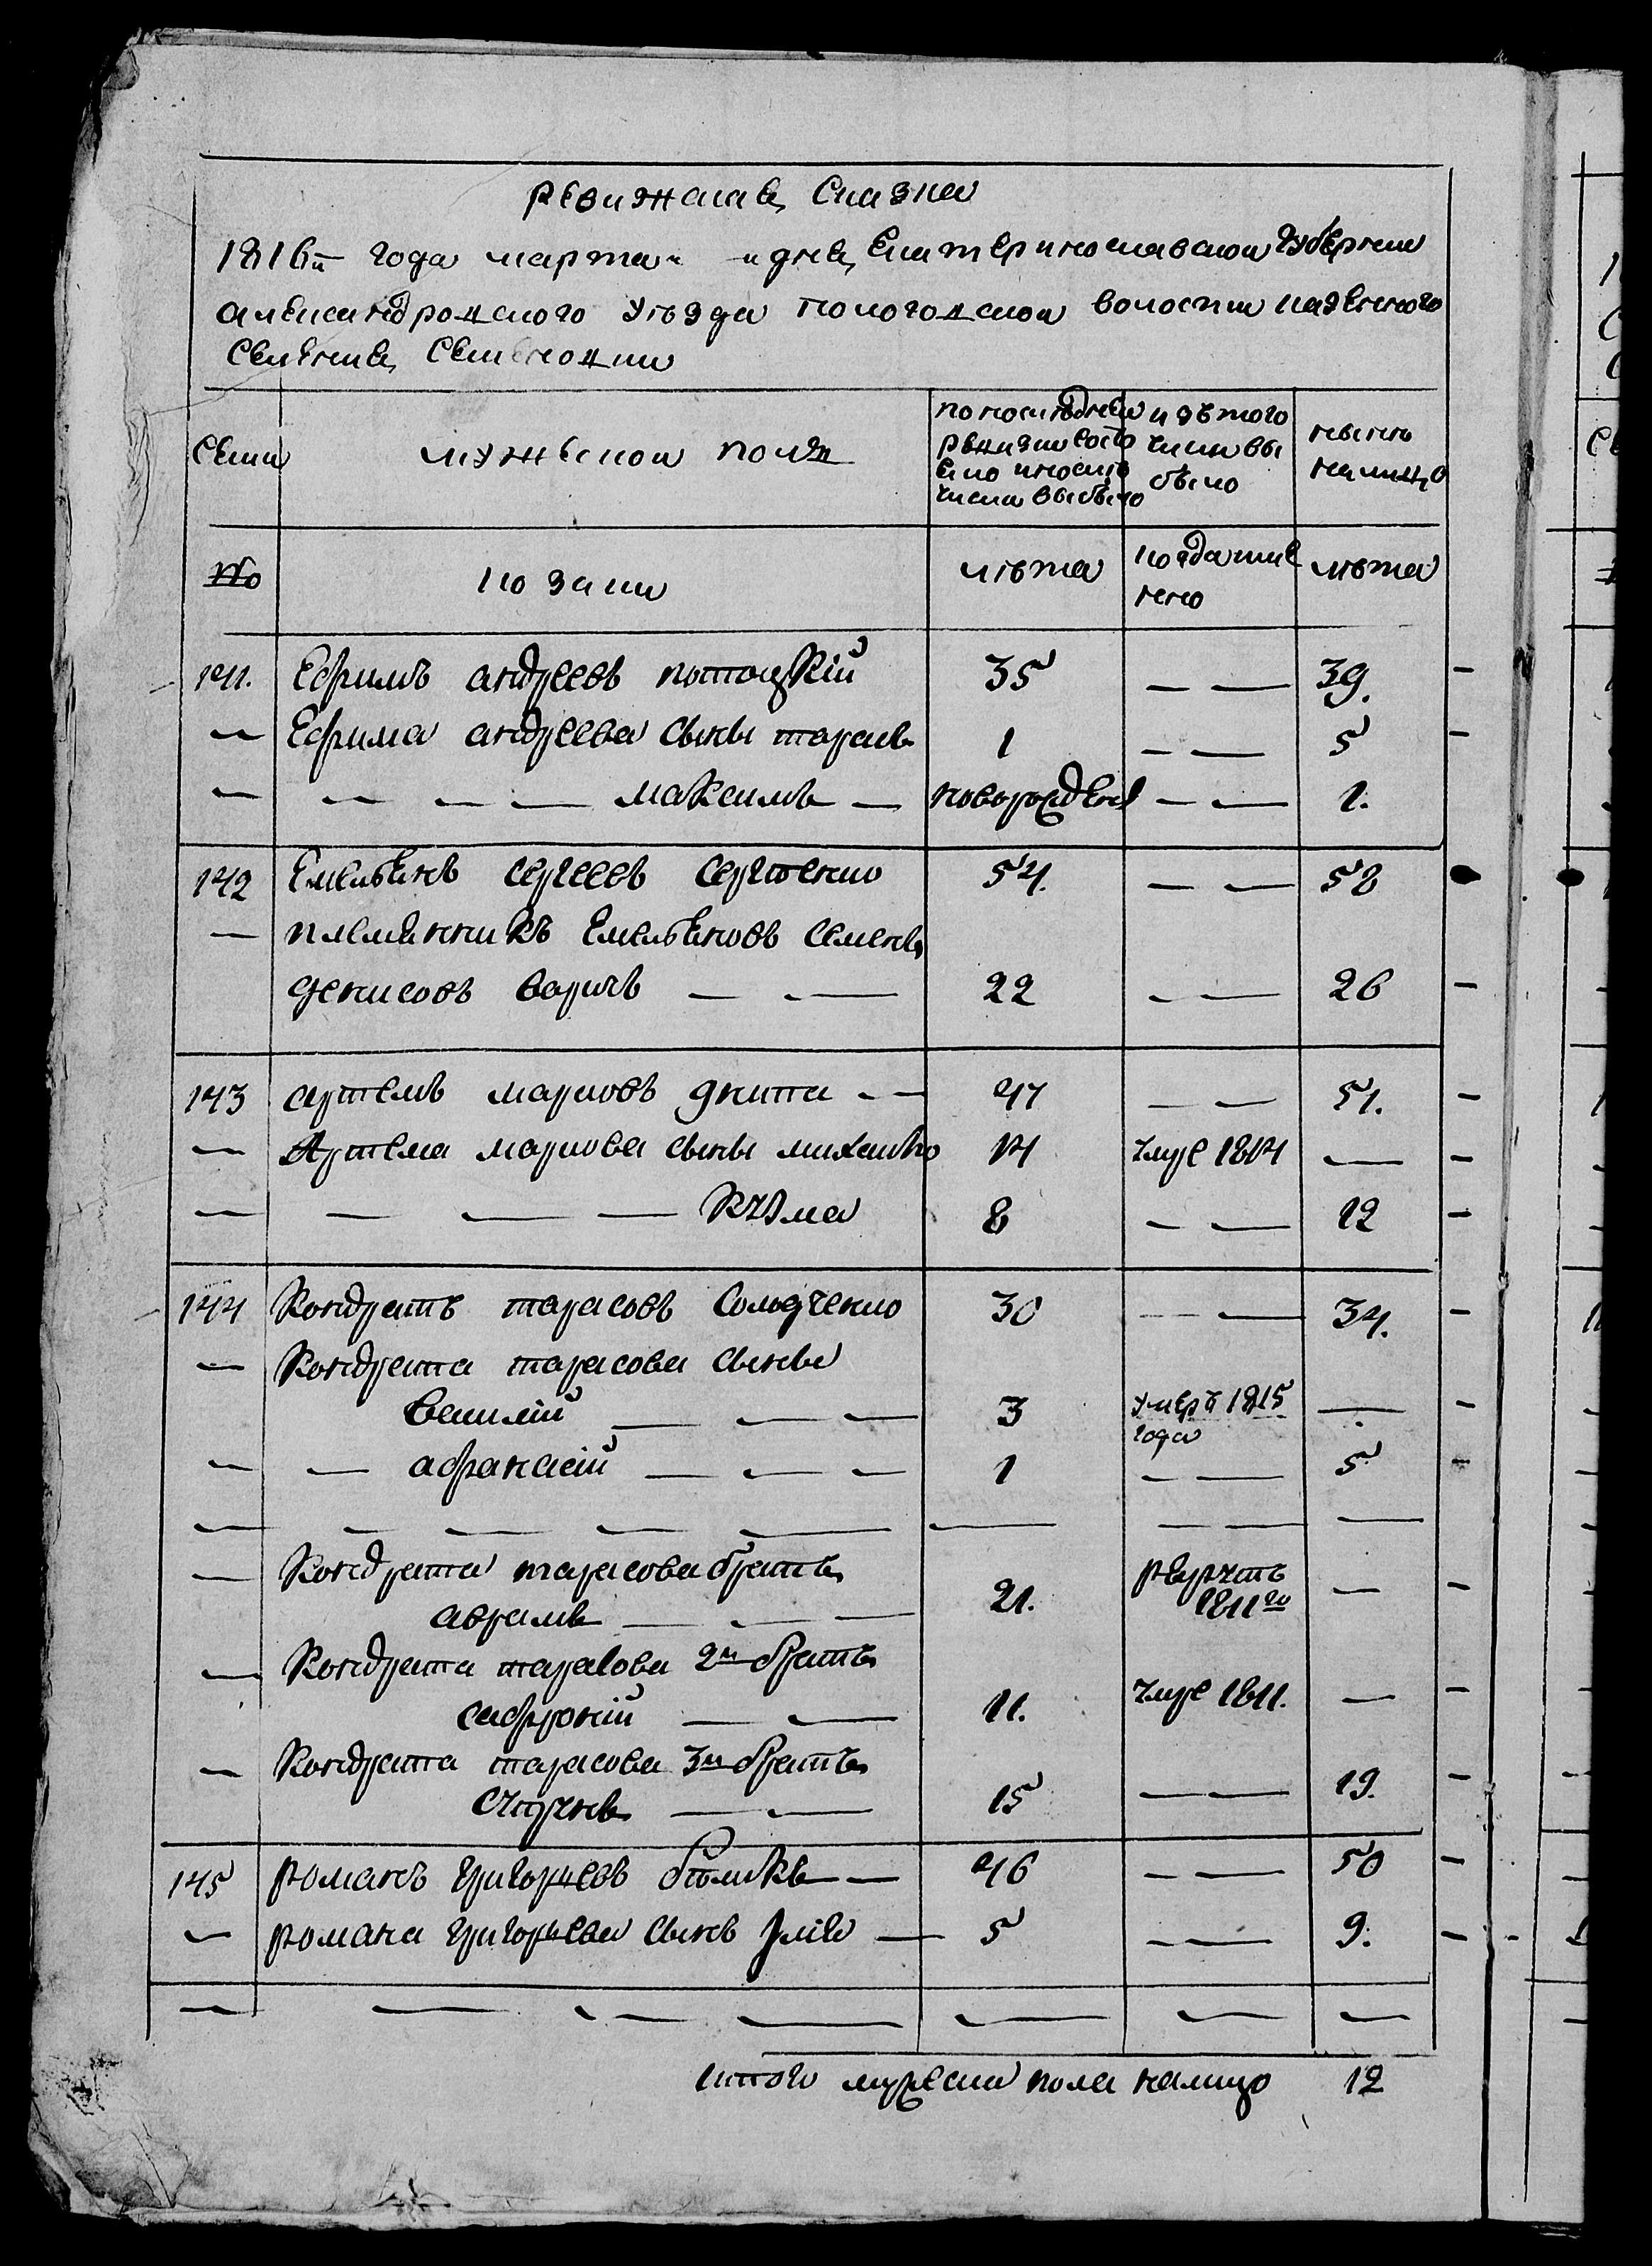 ревижская Сказка
1816й года марта дня, Екатеринославской губернии
александровского уѣзда пологовской волости казенного
Селения Семеновки
Семи
мужеской полъ
по последней ревизии состояло и после числа выбыло
изъ того числа выбыло
ныне налицо
No
козаки
лѣта
когда именно
лѣта
141. Ефимъ андреевъ потоцкій 35 — — 39.
— Ефима андреева сынъ тарасъ 1 — — 5
— — — — максимъ — новорожден — — 1.
142 Емельянъ сергеевъ сергиенко 54. — — 58
— племянникъ Емельяновъ семенъ
денисовъ варичъ — — 22 — — 26
143 артемъ марковъ гнипа — — 47 — — 51.
— Артема маркова сынъ михайло 14 умре 1814 —
— — — — кузма 8 — — 12
144 Кондратъ тарасовъ Солодченко 30 — — 34.
— Кондрата тарасова сыны
василій — — — 3 умеръ 1815 года —
— — афанасій — — — 1 — — 5
— — — — — — — — —
— Кондрата тарасова братъ
аврамъ — — — 21. рекрутъ 1811го —
— Кондрата тарасова 2й братъ
сафроній — — 11. умре 1811. —
— Кондрата тарасова 3й братъ
— — 15 — — 19.
145 романъ григорьевъ бѣликъ — — 46 — — 50
— романа григорьева сынъ илія — 5 — — 9.
— — — — — — —
итого мужеска пола налицо 12